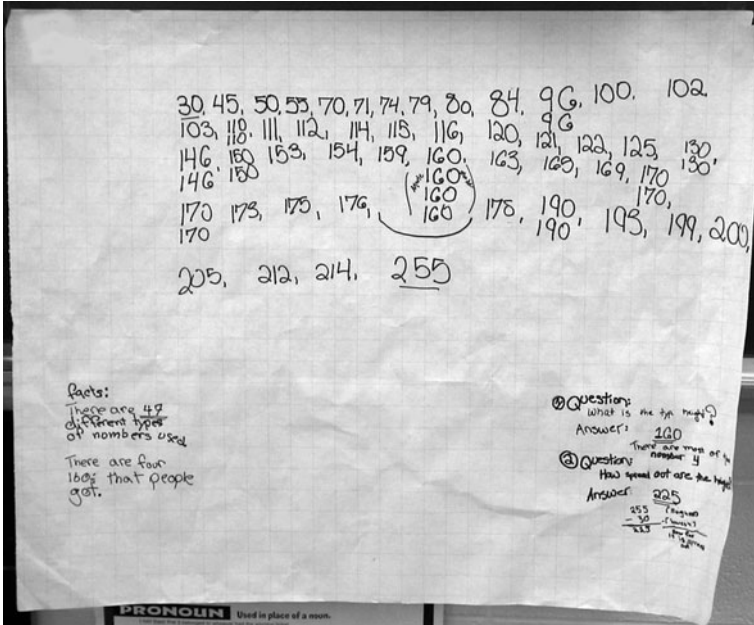 30, 45, 50, 55, 70, 71, 74, 79, 80, 84, 96, 100, 102
96
103, 110, 111, 112, 114, 115, 116, 120, 121, 122, 125, 130
110 130
146 150 153, 154, 159, 160, 163, 165, 169, 170
146 150 160 170,
160
170 173, 175, 176, 160 178, 190, 193, 199, 200,
170 190
205, 212, 214, 255
facts:
There are 47
different types
of nombers used
There are foor
160s that people
got.
① Question:
What is the typ height?
Answer: 160
There are most of
nomber 4
② Question:
How spread out are the
Answer 225
255
- 30
225
PRONOUN Used in place of a noun.